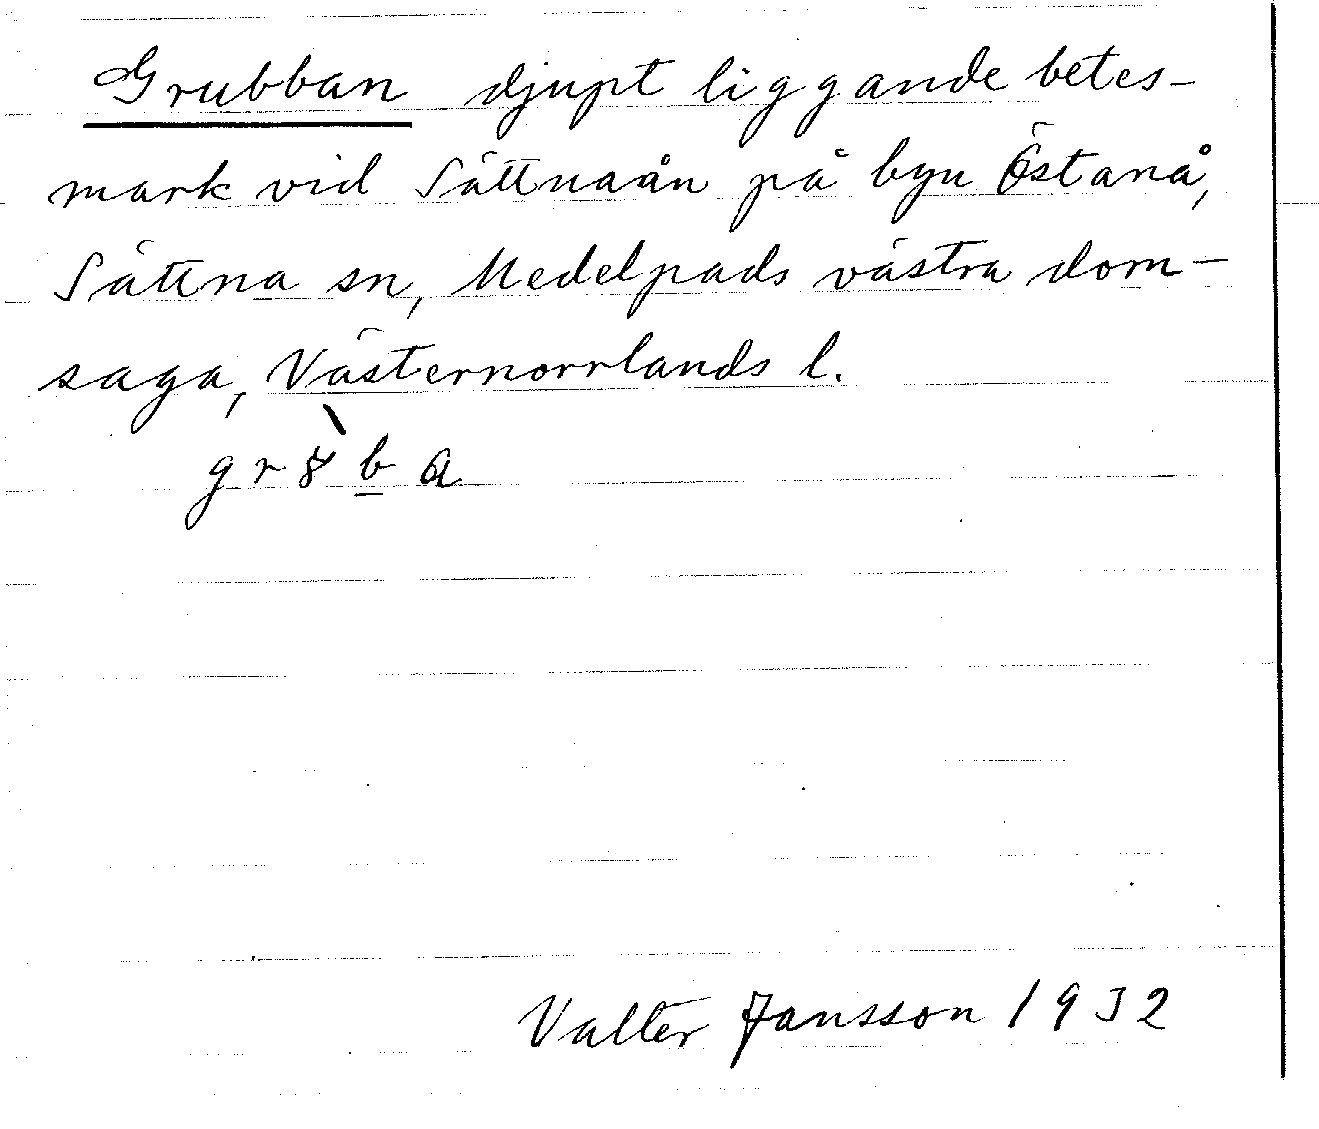 Grubban djupt liggande betes-
mark vid Sättnaån på byn Östanå,
Sättna sn, Medelpads västra dom-
saga, Västernorrlands l.
gr8̀b̲a
Valter Jansson 1932